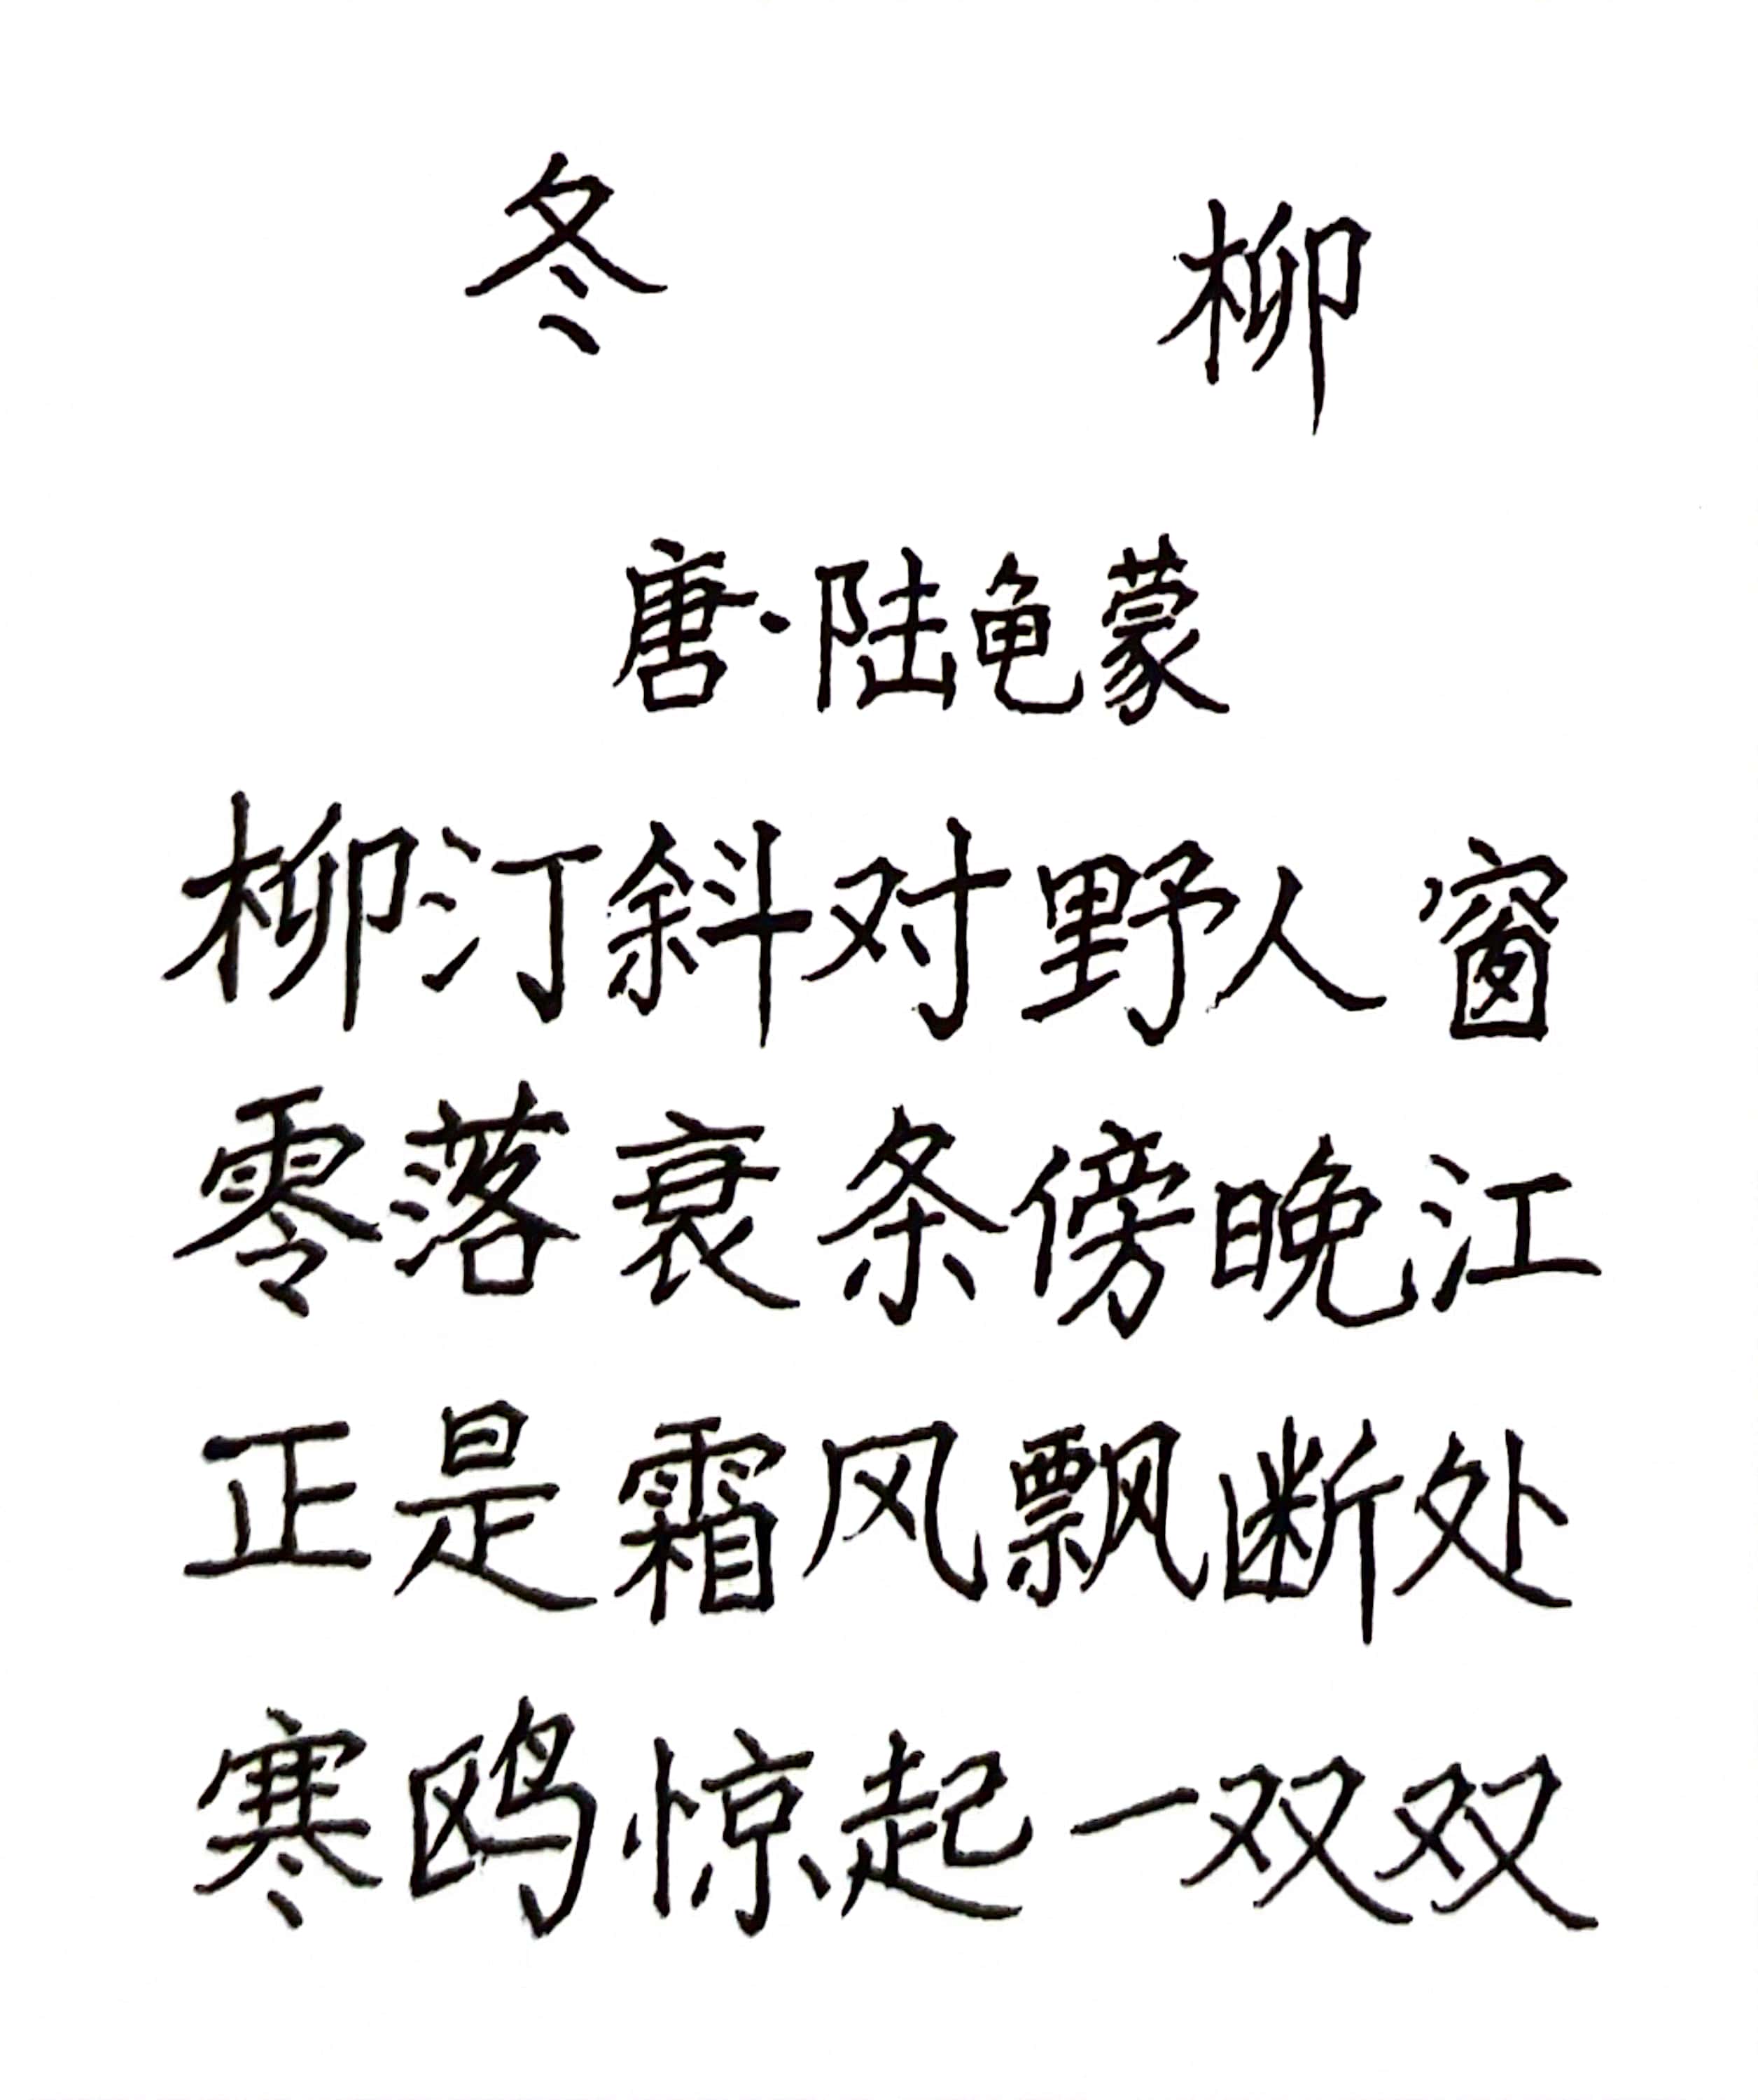 冬 柳
唐·陆龟蒙
柳汀斜对野人窗
零落衰条傍晚江
正是霜风飘断处
寒鸥惊起一双双